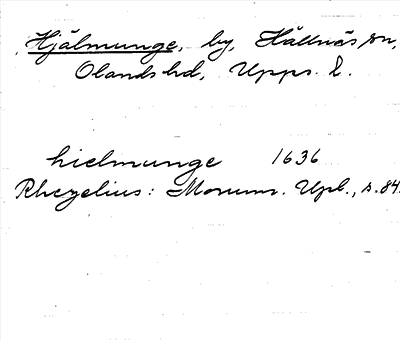 Hjälmunge, by, Hållnäs sn,
Olands hd, Upps. l.
hielmunge 1636
Rhezelius: Monum. Upl., s. 84.